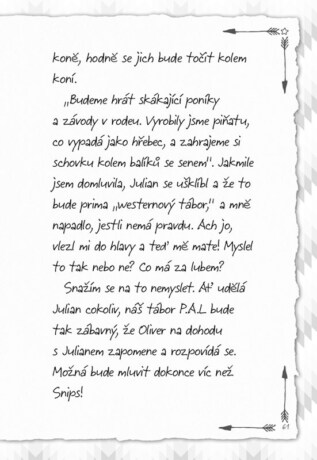 koně, hodně se jich bude točit kolem
koní.
„Budeme hrát skákající poníky
a závody v rodeu. Vyrobily jsme piñatu,
co vypadá jako hřebec, a zahrajeme si
schovku kolem balíků se senem". Jakmile
jsem domluvila, Julian se ušklíbl a že to
bude prima „westernový tábor," a mně
napadlo, jestli nemá pravdu. Ach jo,
vlezl mi do hlavy a teď mě mate! Myslel
to tak nebo ne? Co má za lubem?
Snažím se na to nemyslet. Ať udělá
Julian cokoliv, náš tábor P.A.L bude
tak zábavný, že Oliver na dohodu
s Julianem zapomene a rozpovídá se.
Možná bude mluvit dokonce víc než
Snips!
61